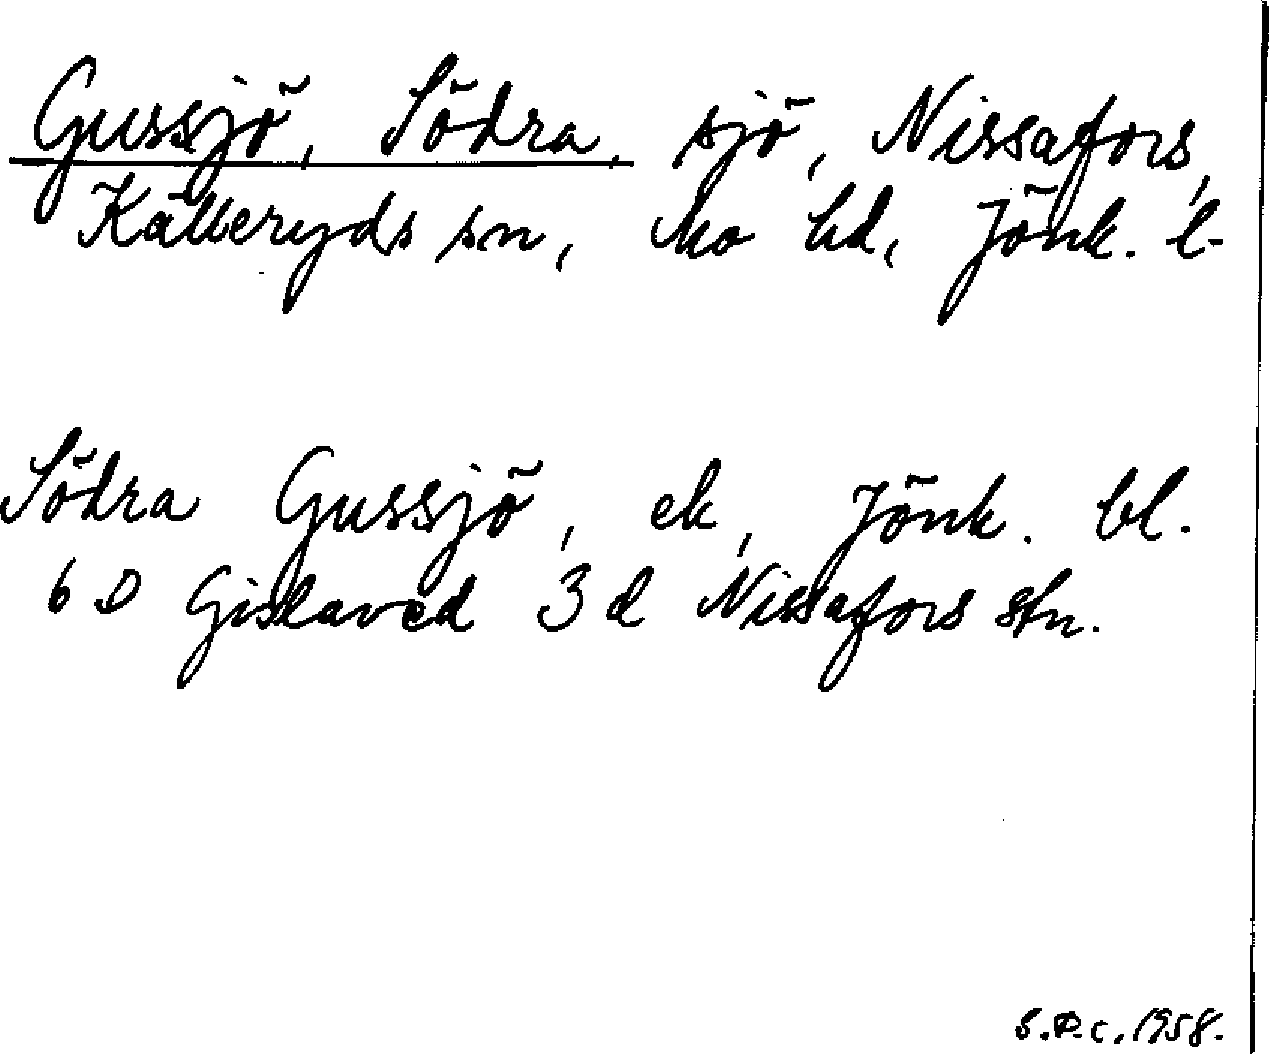 Gussjö, Södra, sjö, Nissafors,
Källeryds sn, Mo hd, Jönk. l.
Södra Gussjö, ek, Jönk. bl.
6 D Gislaved 3 d Nissafors stn.
S.R.C. 1958.